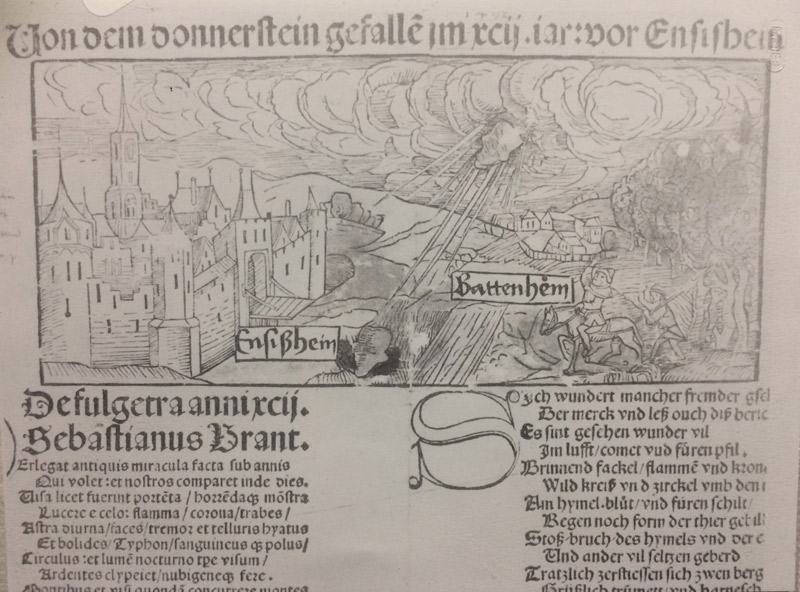 Von dem donnerstein gefallē jm xcij. iar: vor Ensishein
Battenhēm
Ensißhein
De fulgetra anni xcij.
Sebastianus Brant.
Erlegat antiquis miracula facta sub annis
Qui volet: et nostros comparet inde dies.
Visa licet fuerint portēta / horrēdaqꝫ mōstra
Lucere e celo: flamma / corona / trabes /
Astra diurna / faces / tremor et telluris hyatus
Et bolides / Typhon / sanguineus qꝫ polus /
Circulus: et lumē nocturno tpe visum /
Ardentes clypei et / nubigeneqꝫ fere.
Montibus et visi quondā concurrere montes
Sych wundert mancher fremder gsel
Der merck vnd leß ouch diß beric
Es sint gesehen wunder vil
Jm lufft / comet vnd füren pfil.
Brinnend fackel / flammē vnd kron
Wild kreiß vnd zirckel vmb den
Am hymel. blůt / vnd füren schilt /
Regen noch form der thier gebil
Stoß. bruch. des hymels vnd der e
Vnd ander vil seltzen geberd
Tratzlich zerstiessen sich zwen berg
Grüßlich trümett / vnd harnesch